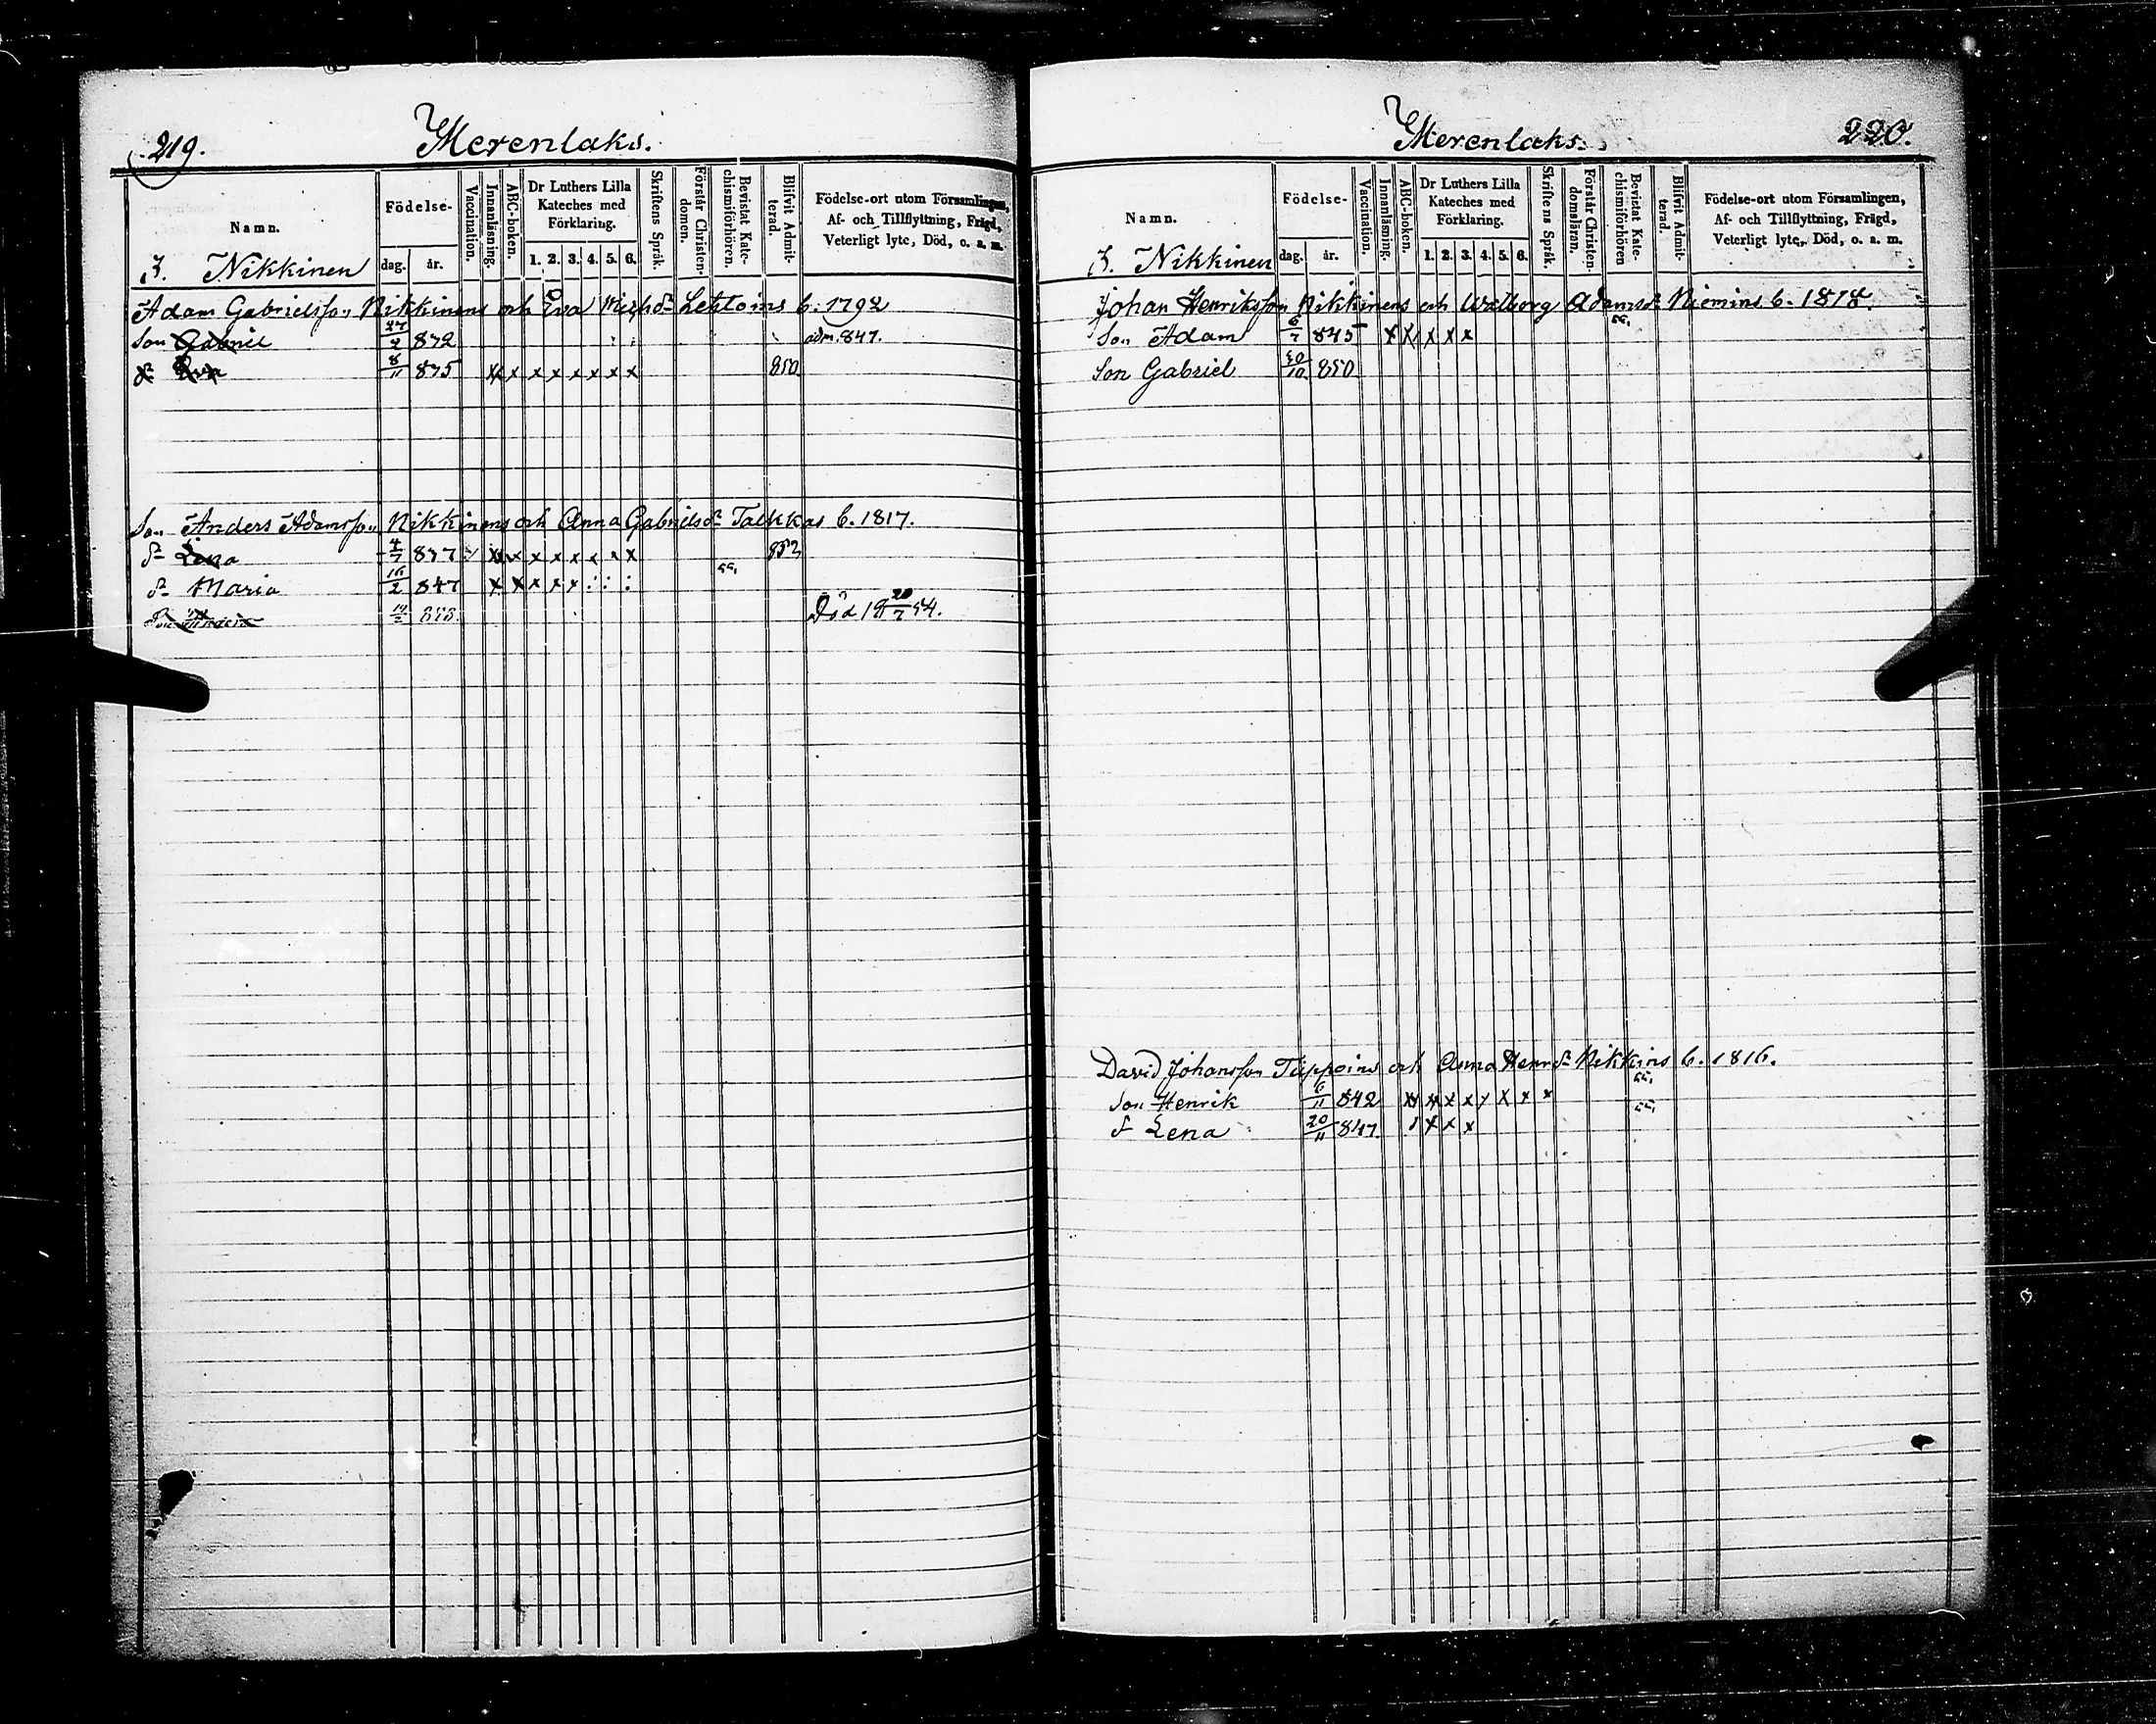 219.
Merenlaks.
Namn.
Födelse-
dag.
år.
Vaccination.
Innanläsning.
ABC-boken.
Dr Luthers Lilla
Kateches med
Förklaring.
1. 2. 3. 4. 5. 6.
Skriftens Språk.
Förstår Christen-
domen.
Bevistat Kate-
chismiförhören.
Blifvit Admit-
terad.
Födelse-ort utom Församlingen,
Af- och Tillflyttning, Frägd,
Veterligt lyte, Död, o. a. m.
3. Nikkinen
Adam Gabrielsson Nikkinens och Eva Michsdr Lehtoins b. 1792
Son Gabriel 27/2 832 adm. 847.
dr Eva 8/11 835 x x x x x x x x 850
Son Anders Adamsson Nikkinens och Anna Gabrielsdr Talkkas b. 1817.
dr Lena 4/7 837 x x x x x x x x 852
dr Maria 16/2 847 x x x x x : : : 55,
Son Anders 19/2 853. Död 18 20/7 54.
Merenlaks.
220.
Namn.
Födelse-
dag.
år.
Vaccination.
Innanläsning.
ABC-boken.
Dr Luthers Lilla
Kateches med
Förklaring.
1. 2. 3. 4. 5. 6.
Skriftens Språk.
Förstår Christen-
domsläran.
Bevistat Kate-
chismiförhören
Blifvit Admit-
terad.
Födelse-ort utom Församlingen,
Af- och Tillflyttning, Frägd,
Veterligt lyte, Död, o. a. m.
3. Nikkinen
Johan Henriksson Nikkinens och Walborg Adamsdr Niemins b. 1818.
Son Adam 6/7 845 x x x x x 55,
Son Gabriel 30/10 850
David Johansson Tuppoins och Anna Henrdr Nikkins b. 1816.
Son Henrik 6/11 842 x x x x x x x x 55,
dr Lena 20/11 847. x x x 55,